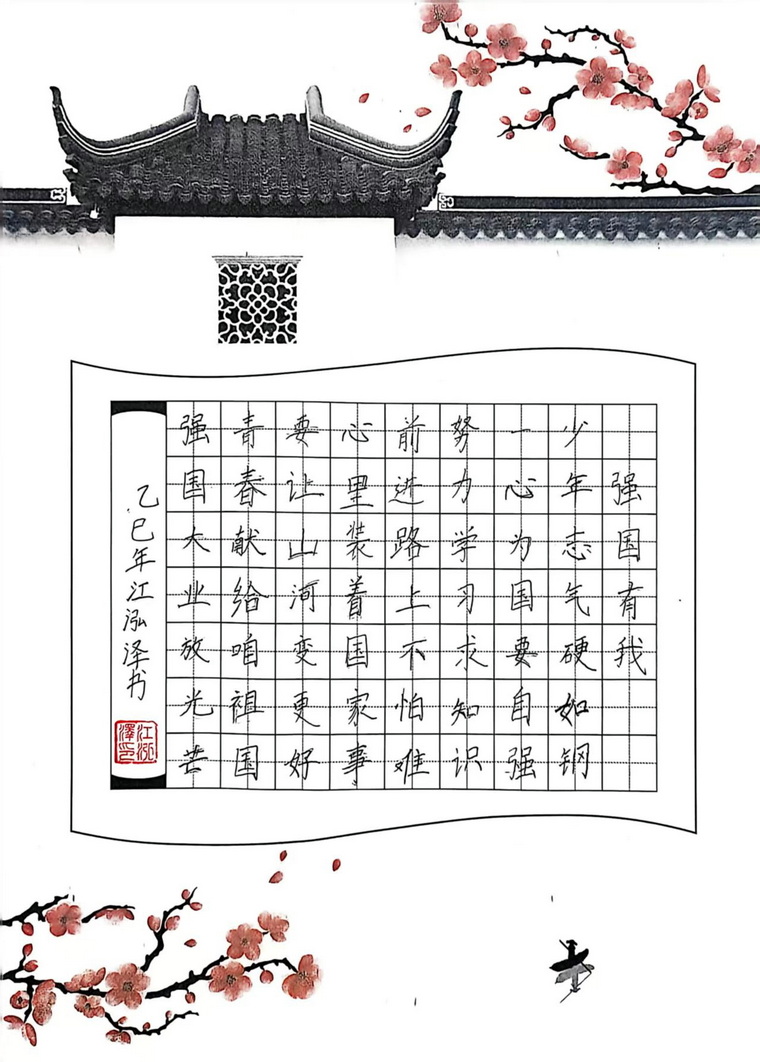 强国有我
少年志气硬如钢
一心为国要自强
努力学习求知识
前进路上不怕难
心里装着国家事
要让山河变更好
青春献给咱祖国
强国大业放光芒
乙巳年江泓泽书
江泓澤印